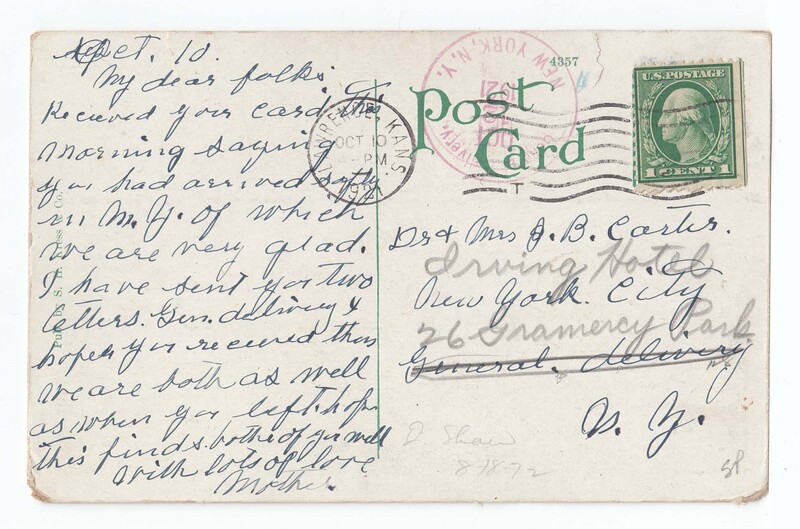 Oct. 10.
My dear folks. 
Recieved your card this
morning saying
you had arrived safe
in N.Y. of which
we are very glad.
I have sent you two
letters. Gen. delivery &
hope you recieved them
we are both as well
as when you left. hope
this finds both of you well
with lots of love
Mother.
Pub. by S. H. Kress & Co.
LAWRENCE, KANS.
OCT 10
PM
1921
NEW YORK, N.Y.
OCT
1921
Delivery.
4357
Post
Card
U.S. POSTAGE
1 CENT 1
T
Dr & Mrs J. B. Carter.
Irving Hotel
New York. City
26 Gramercy Park
General. delivery
N. Y.
D. Shaw
8-18-72